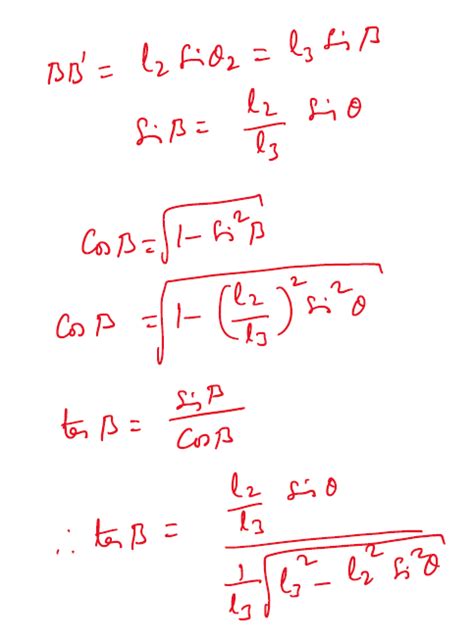 BB' = l₂ Sinθ₂ = l₃ Sin β
Sin β = l₂/l₃ Sin θ
Cos β = √(1 - Sin²β)
Cos β = √(1 - (l₂/l₃)² Sin²θ)
tan β = Sin β / Cos β
∴ tan β = (l₂/l₃ Sin θ) / (1/l₃ √(l₃² - l₂² Sin²θ))